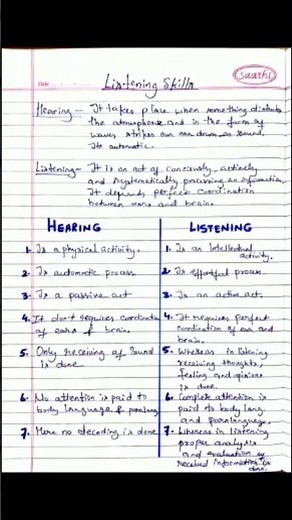 Saathi
Date
Listening Skills
Hearing - It takes place when something disturbs
the atmosphere and in the form of
waves strikes our ear drum as sound.
Its automatic.
Listening - It is an act of conciously, actively
and systematically processing an information
It depends perfect coordination
between ears and brain.
HEARING
1. Is a physical activity.
2. Is automatic process
3. Is a passive act
4. It don't requires coordination
of ears & brain.
5. Only receiving of sound
is done
6. No attention is paid to
body language & paralang
7. Here no decoding is done
LISTENING
1. Is an Intellectual
activity.
2. Is effortful process.
3. Is an active act.
4. It requires perfect
cordination of ear and
brain.
5. Whereas in listening
receiving thoughts,
feeling and opinions
is done.
6. Complete attention is
paid to body lang.
and paralanguage.
7. Whereas in listening
proper analysis
and evaluation of
received information is
done.